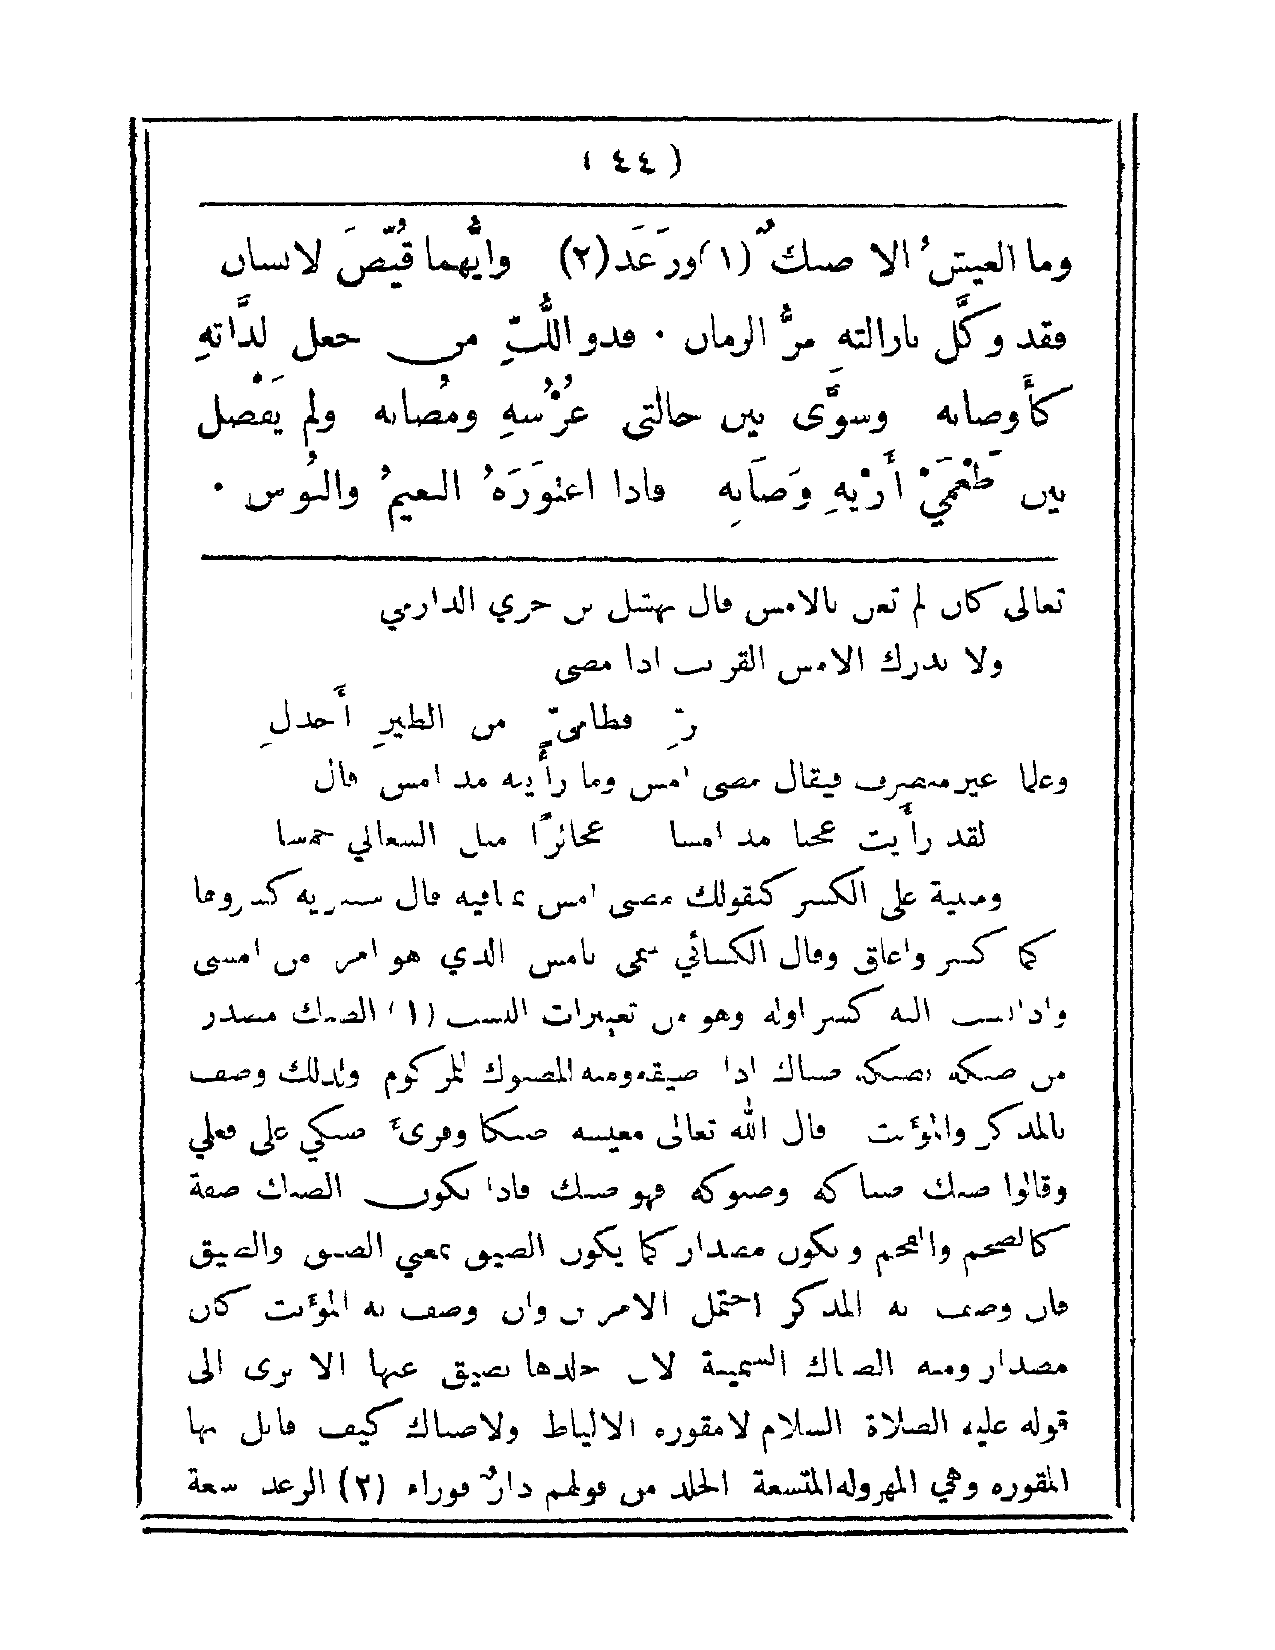 ( ٤٤ )
وما العيش ُ الا ضنك ٌ (١) ورَغَد (٢) وايُّهما قُيّضَ لانسان
فقد وكّل بازالتهِ مرُّ الزمان ۰ فذو اللُّبّ من جعل لذَّاتهِ
كأوصابه وسوَّى بين حالتي عُرْسهِ ومُصابه ولم يَفْصل
بين طَعْمَيْ أَرْيهِ وَصَابِه فاذا اعتوَرَهُ النعيمُ والبُوس ۰
تعالى كان لم تغن بالامس قال نهشل بن حري الدارمي
ولا يدرك الامس القريب اذا مضى
فطاميّ من الطير أَجدل
وعلما غير منصرف فيقال مضى امس وما رأيته مذ امس قال
لقد رأيت عجبا مذ امسا عجائزًا مثل السعالي خمسا
ومبنية على الكسر كقولك مضى امس بما فيه قال سيبويه كسروها
كما كسر واغاق وقال الكسائي سمي بامس الذي هو امر من امسى
واذا نسب اليه كسر اوله وهو من تغييرات النسب (١) الضنك مصدر
من ضنكه يضنكه ضناك اذا ضيقه ومنه المضنوك للمزكوم ولذلك وصف
بالمذكر والمؤنث قال الله تعالى معيشة ضنكا وقرئ ضنكي على فعلي
وقالوا ضنك ضناكه وضنوكه فهو ضنك فاذا يكون الضنك صفة
كالضخم والفخم و يكون مصدار كما يكون الضيق بمعنى الضيق والضيق
فان وصف به المذكر احتمل الامرين وان وصف به المؤنث كان
مصدار ومنه الضناك السمينة لان جلدها يضيق عنها الا ترى الى
قوله عليه الصلاة السلام لا مقوره الالياط ولا ضناك كيف قابل بها
المقوره وهي المهزوله المتسعة الجلد من قولهم دارٌ قوراء (٢) الرغد سعة